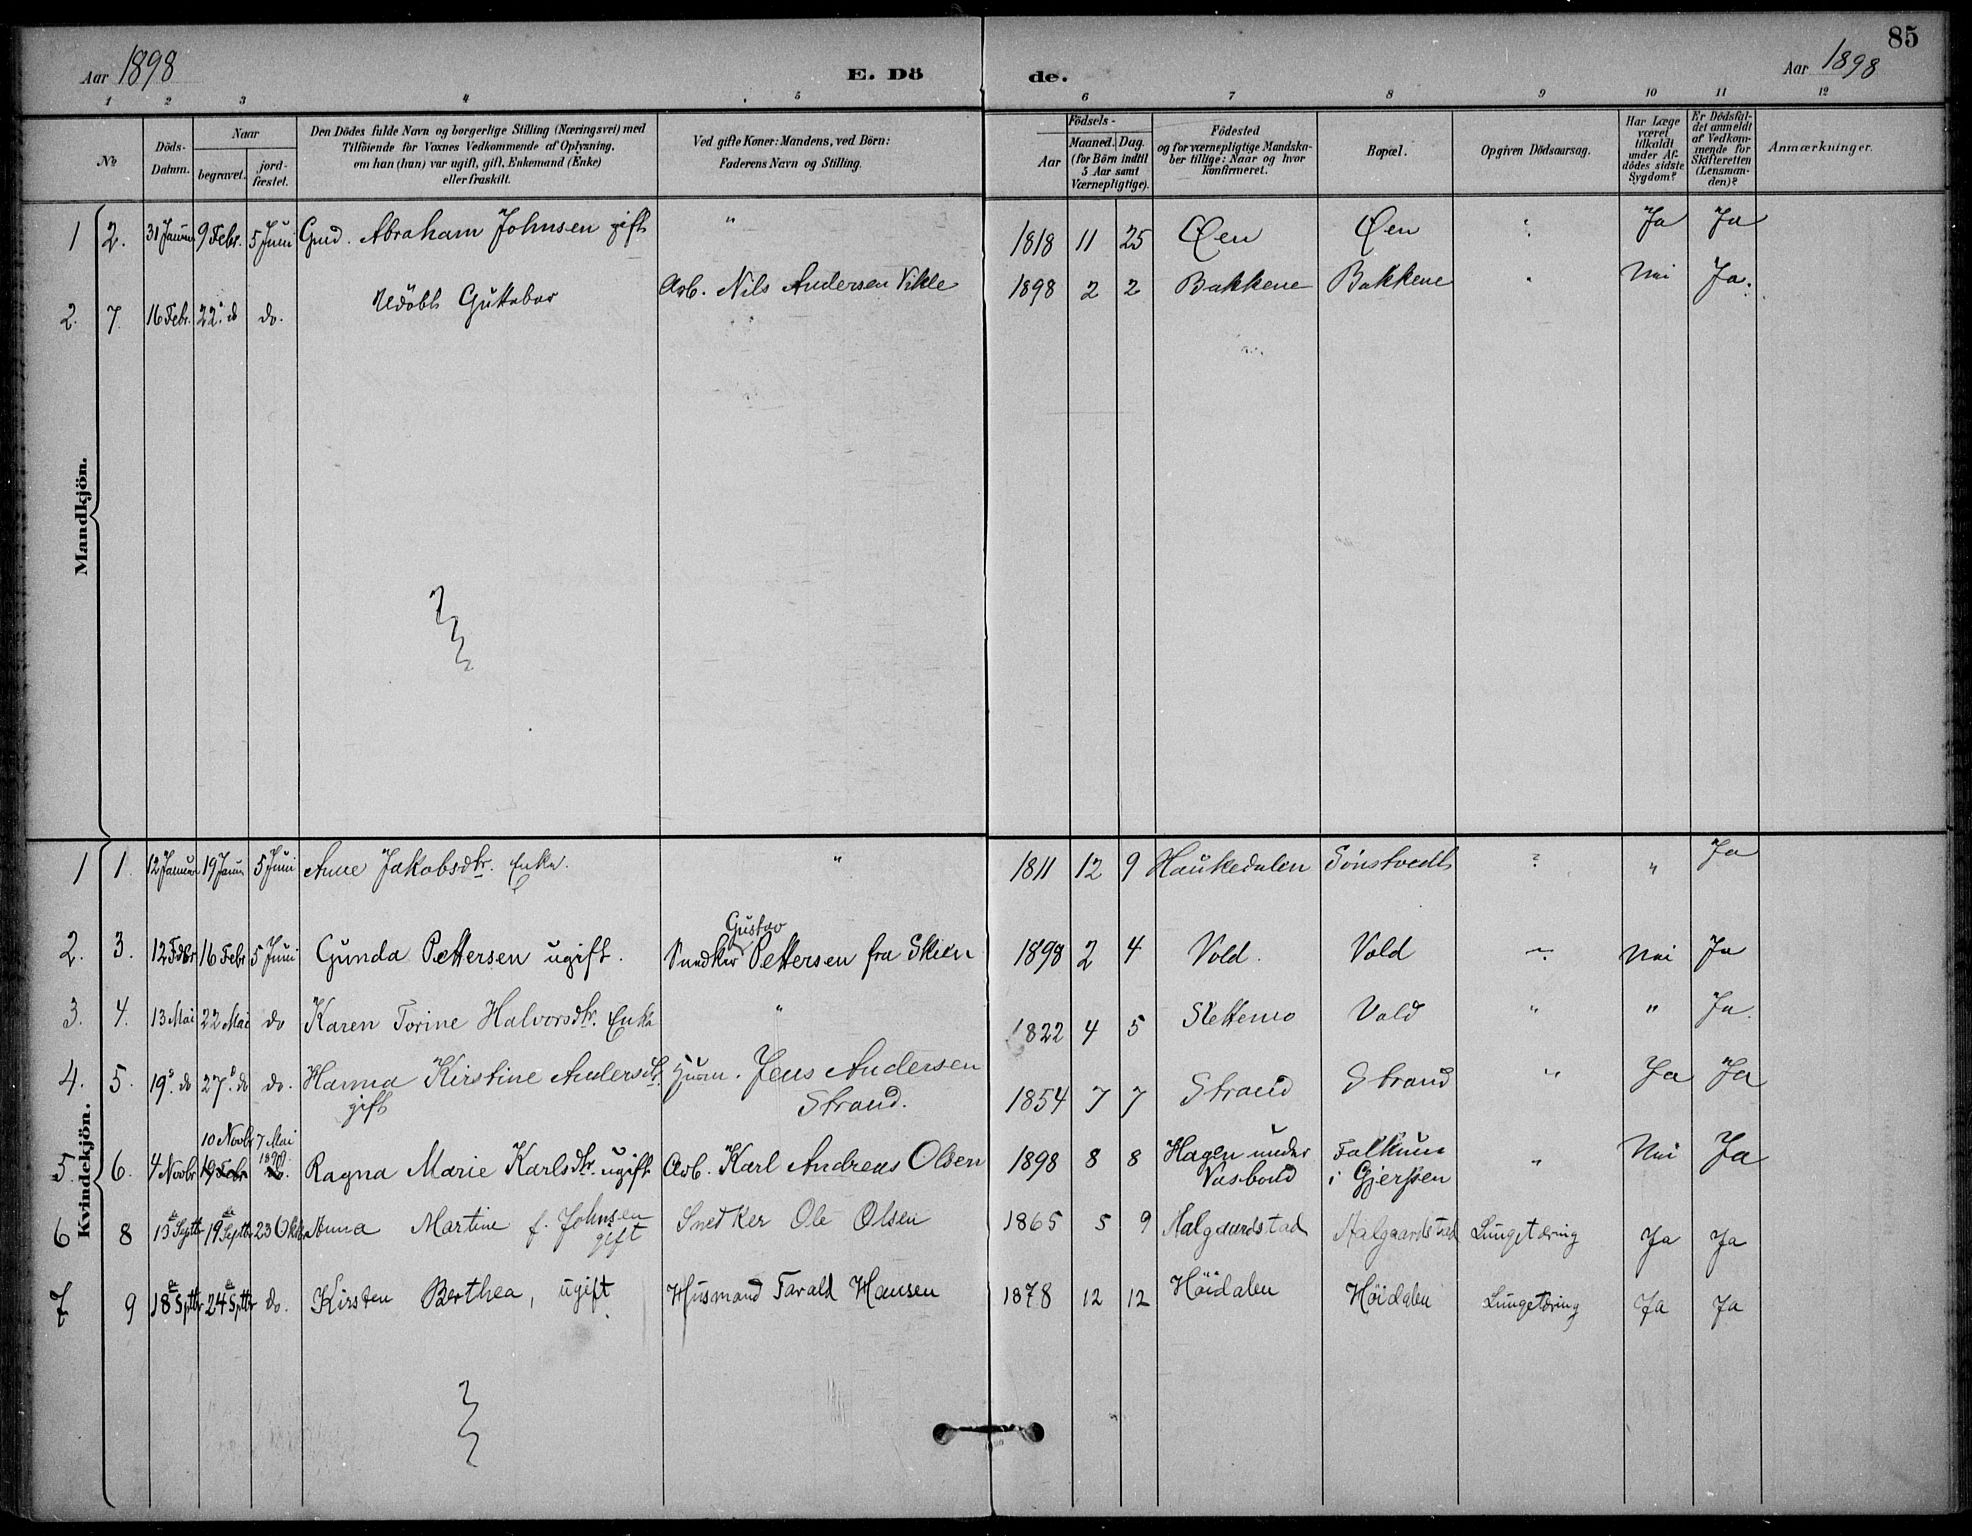 85
Aar 1898 E. Dö de. Aar 1898
1 2 3 4 5 6 7 8 9 10 11 12
No
Döds-Datum.
Naar
begravet.
jord-fæstet.
Den Dödes fulde Navn og borgerlige Stilling (Næringsvei) med
Tilföiende for Voxnes Vedkommende af Oplysning,
om han (hun) var ugift, gift, Enkemand (Enke)
eller fraskilt.
Ved gifte Koner: Mandens, ved Börn:
Faderens Navn og Stilling.
Födsels-
Aar
Maaned. Dag.
(for Börn indtil
5 Aar samt
Værnepligtige).
Födested
og for værnepligtige Mandska-
ber tillige: Naar og hvor
konfirmeret.
Bopæl.
Opgiven Dödsaarsag.
Har Læge
været
tilkaldt
under Af-
dödes sidste
Sygdom?
Er Dödsfal-
det anmeldt
af Vedkom-
mende for
Skifteretten
(Lensman-
den)?
Anmærkninger.
Mandkjön.
1 2. 31 Januar 9 Febr. 5 Juni Gmd. Abraham Johnsen gift " 1818 11 25 Øen Øen ? Ja Ja
2. 7. 16 Febr. 22. do do. Udöbt Guttebar Arb. Nils Andersen Vikle 1898 2 2 Bakkene Bakkene " Nei Ja.
Kvindekjön.
1 1. 12 Januar 19 Janu 5 Juni Anne Jakobsdtr. Enke. " 1811 12 9 Haukedalen Sönstvedt ? " Ja
2. 3. 12 Febr 16 Febr 5 Juni Gunda Pettersen ugift. Snedker Gustav Pettersen fra Skien 1898 2 4 Vold. Vold Nei Ja
3. 4. 13 Mai 22 Mai do Karen Torine Halvorsdtr. Enke " 1822 4 5 Slettemo Vold " " Ja.
4. 5. 19. do 27. do do. Hanna Kirstine Andersdtr. Husm. Jens Andersen
gift Strand. 1854 7 7 Strand Strand " Ja Ja
10 Novbr 7 Mai
1899
5. 6. 4 Novbr 19 Febr do. Ragna Marie Karlsdtr. ugift Arb. Karl Andreas Olsen 1898 8 8 Hagen under Falkum " Nei Ja
Vasbond i Gjerpen
6 8 13 Septb 19 Septbr 23 Oktbr Anna Martine f. Johnsen Snedker Ole Olsen 1865 5 9 Aalgaardstad Aalgaardstad Lungetæring Ja Ja
gift
7 9 18 Sptbr 24 Sptbr do. Kirsten Berthea, ugift Husmand Tarald Hansen 1878 12 12 Höidalen Höidalen Lungetæring Ja Ja